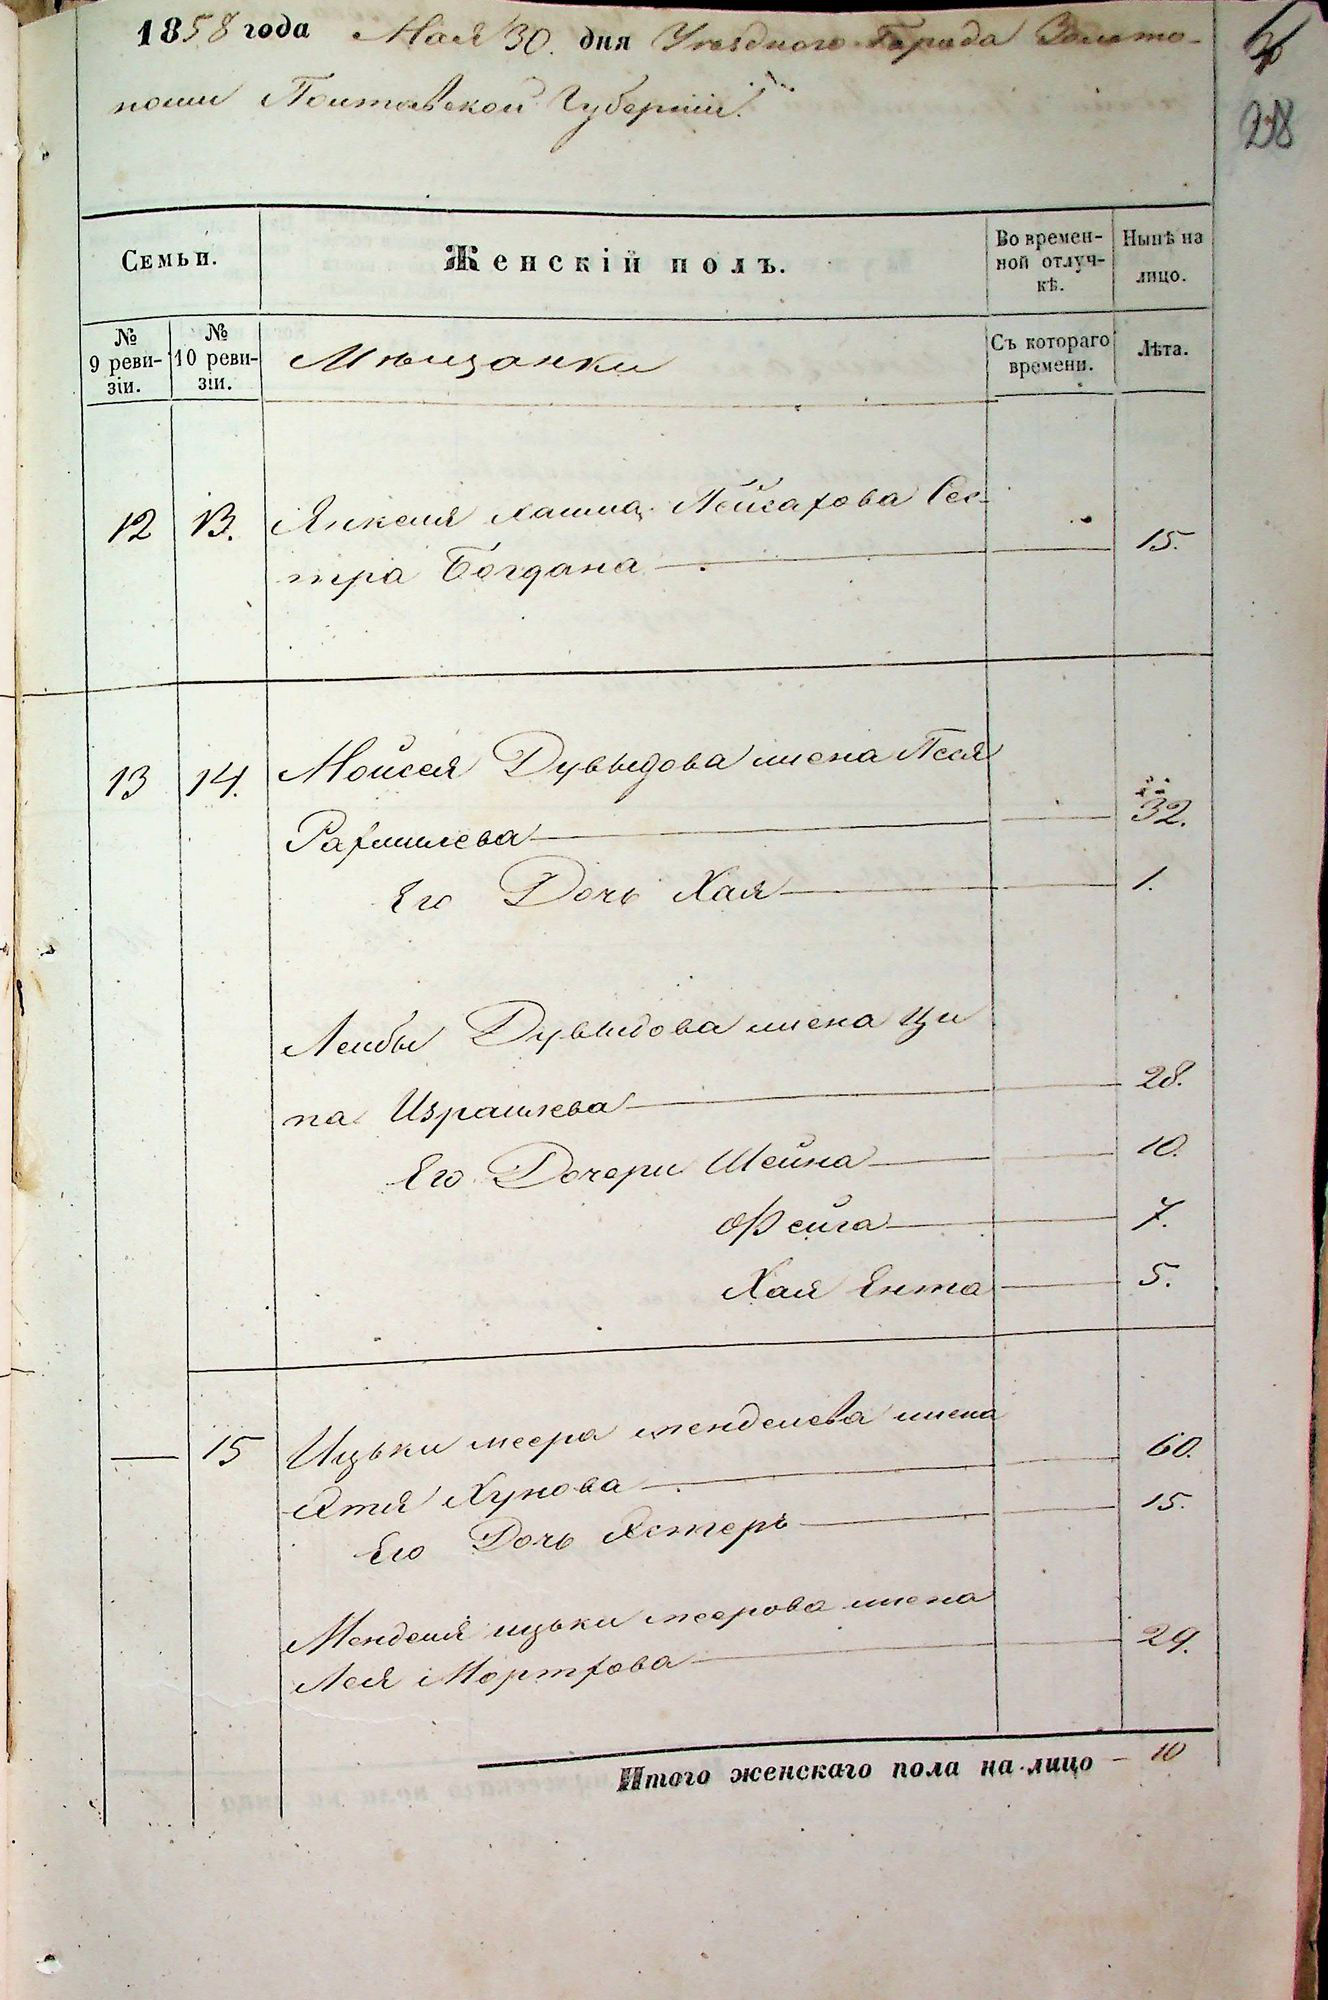 1858 года Мая 30. дня Уездного Города Золото-
ноши Полтавской Губернии.
28
Семьи.
Женскій полъ.
Во времен-
ной отлуч-
кѣ.
Нынѣ на
лицо.
№
9 реви-
зіи.
№
10 реви-
зіи.
Мѣщанки
Съ котораго
времени.
Лѣта.
12 13. Янкеля хаима Лейсахова Сес-
тра Богдана 15.
13 14. Мойсея Дувыдова жена Песя
Рахмилева 32.
Его Дочь Хая 1.
Лейбы Дувыдова жена Ци
па Израилева 28.
Его Дочери Шейна 10.
Фейга 7.
Хая Ента 5.
— 15 Ицьки меера менделева жена
Этля Хунова 60.
Его Дочь Эстеръ 15.
Менделя ицьки меерова жена
Лея Мортхова 29.
Итого женскаго пола на-лицо — 10